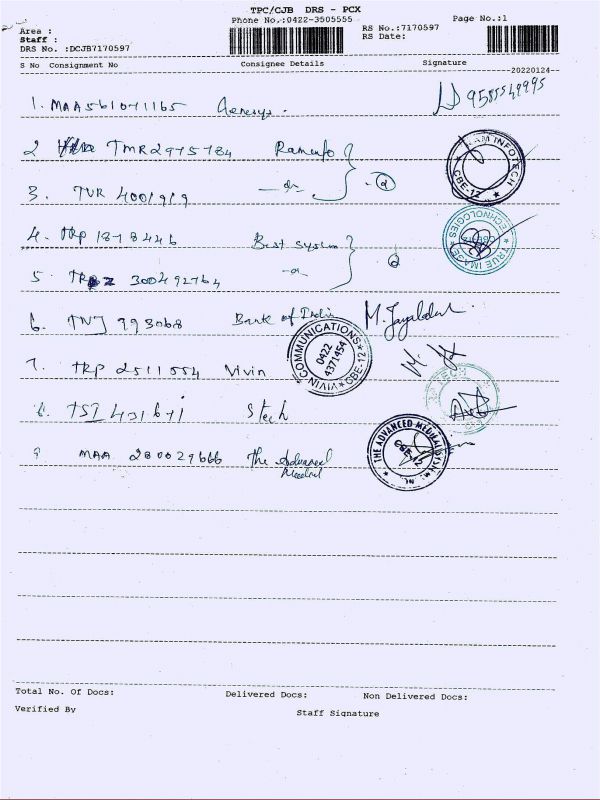 TPC/CJB DRS - PCX
Phone No.:0422-3505555 Page No.:1
Area : RS No.:7170597
Staff : RS Date:
DRS No. :DCJB7170597
S No Consignment No Consignee Details Signature
20220124
1. MAA561041165 9585549995
2 TMR2975784 Raminfo
RAM INFOTECH CBE-12
3. TVR 4001919 -do-
4. TRP 1878446 Best system
TRUE IMAGE TECHNOLOGIES
5 300492764 -do-
6. TNJ 993068 Bank of India M. Jayalakshmi
VIVIN COMMUNICATIONS CBE-12 0422 4371454
7. TRP 2511554 Vivin
8. TSI 431671 Stech
9 MAA 280029666 The Advanced Medical
THE ADVANCED MEDICAL CBE-12
Total No. Of Docs: Delivered Docs: Non Delivered Docs:
Verified By Staff Signature